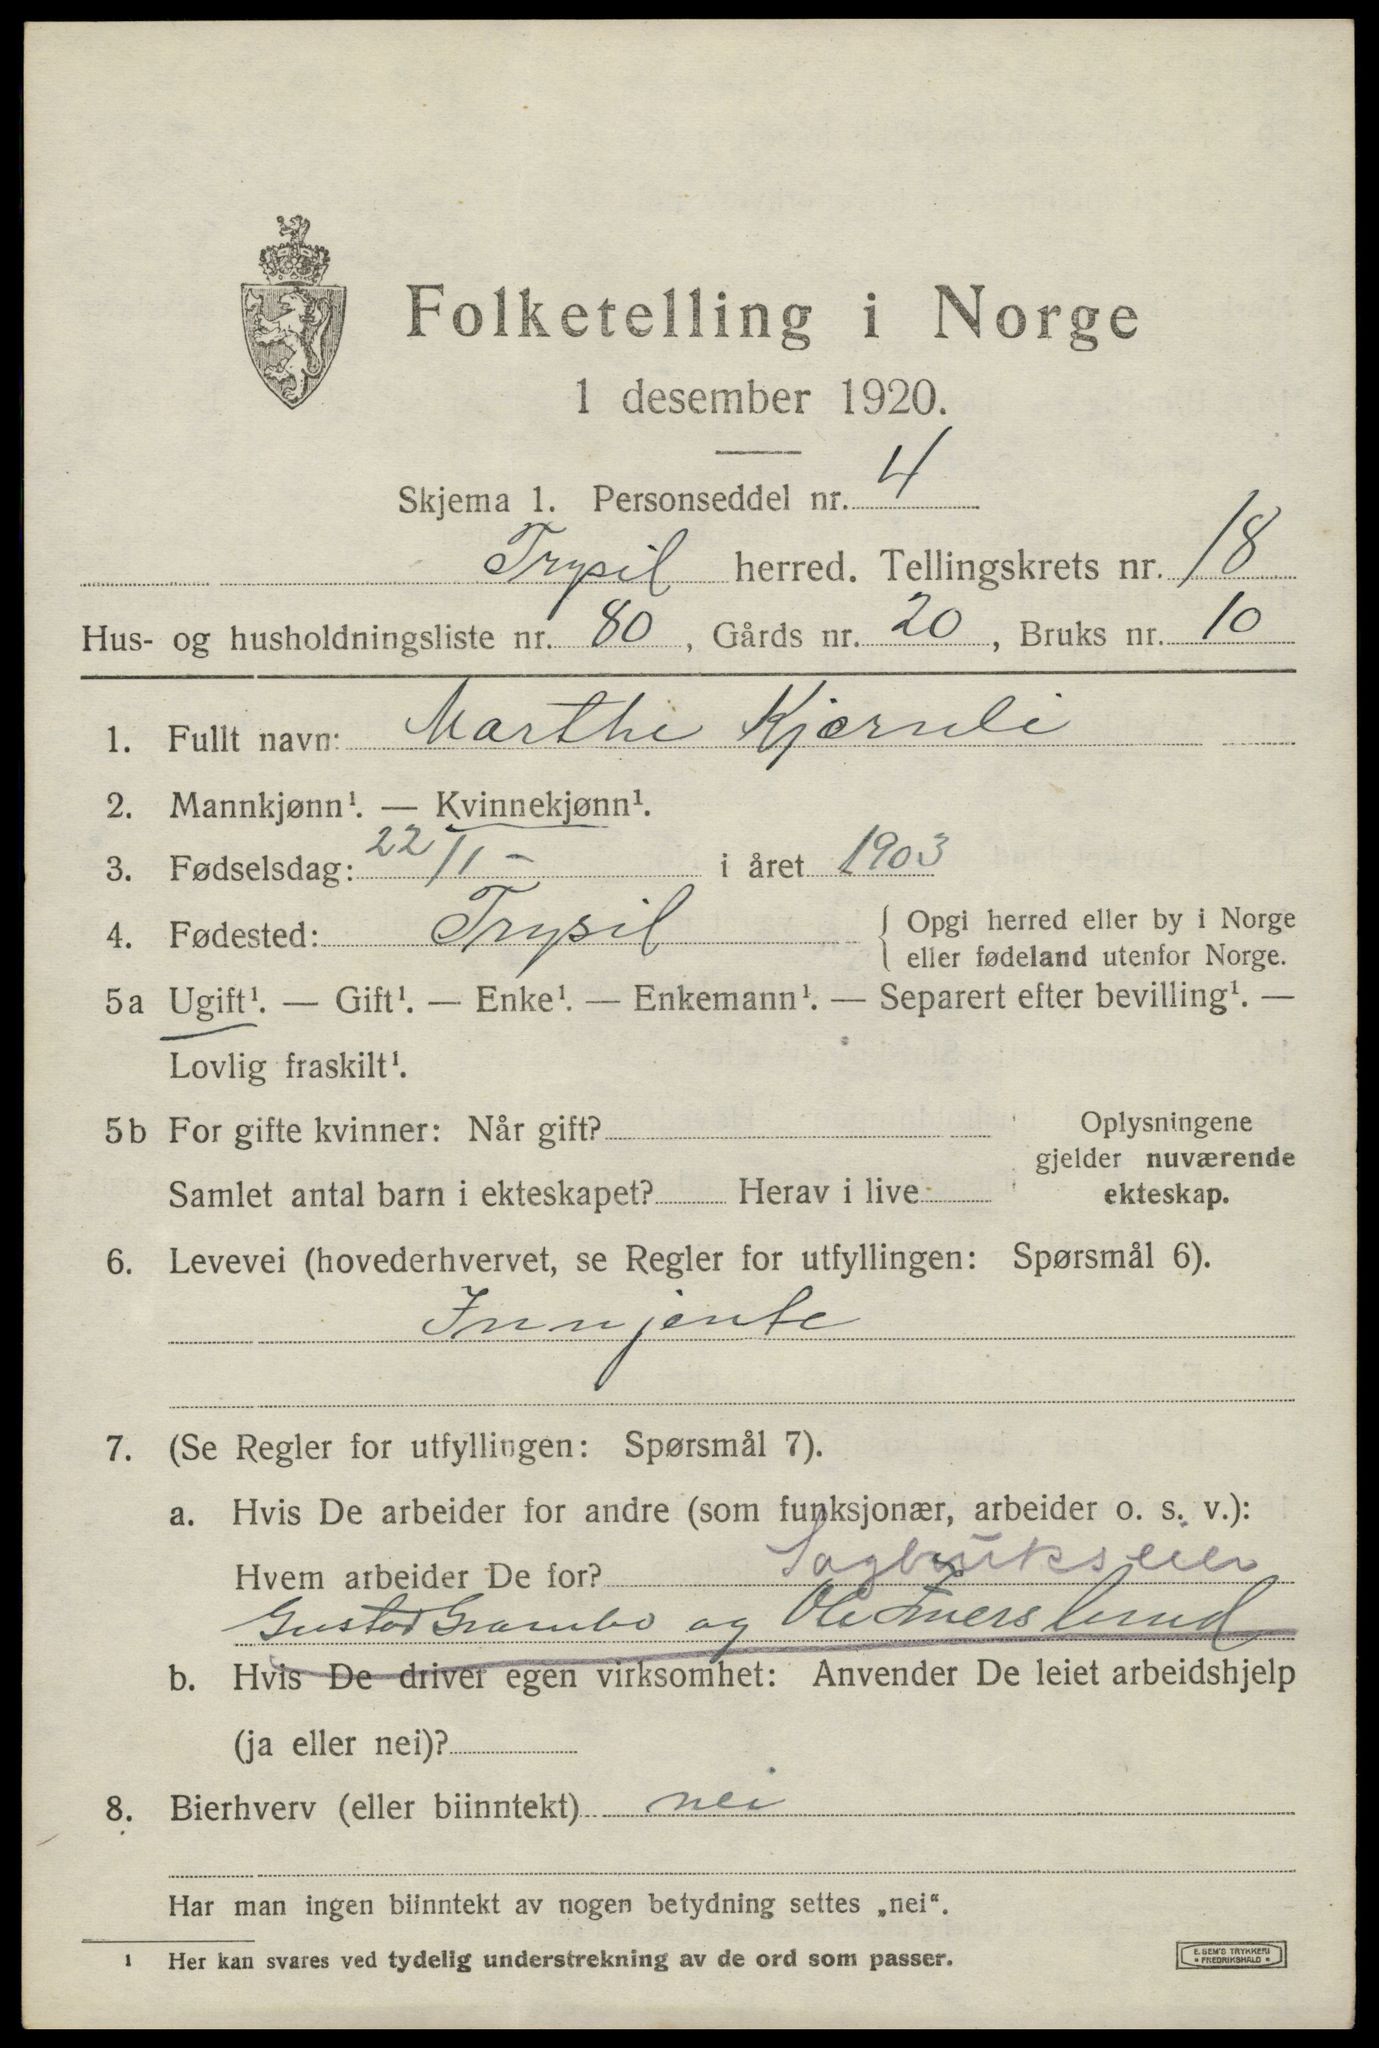 Folketelling i Norge
1 desember 1920.
Skjema 1. Personseddel nr. 4
Trysil herred. Tellingskrets nr. 18
Hus- og husholdningsliste nr. 80, Gårds nr. 20, Bruks nr. 10
1. Fullt navn: Marthe Kjærnli
2. Mannkjønn¹. — Kvinnekjønn¹.
3. Fødselsdag: 22/1 - i året 1903
4. Fødested: Trysil { Opgi herred eller by i Norge
eller fødeland utenfor Norge.
5a Ugift¹. — Gift¹. — Enke¹. — Enkemann¹. — Separert efter bevilling¹. —
Lovlig fraskilt¹.
5b For gifte kvinner: Når gift?
Oplysningene
gjelder nuværende
ekteskap.
Samlet antal barn i ekteskapet? Herav i live
6. Levevei (hovederhvervet, se Regler for utfyllingen: Spørsmål 6).
Innjente
7. (Se Regler for utfyllingen: Spørsmål 7).
a. Hvis De arbeider for andre (som funksjonær, arbeider o. s. v.):
Hvem arbeider De for? Sagbrukseier
Gustav Grambo og Ole
b. Hvis De driver egen virksomhet: Anvender De leiet arbeidshjelp
(ja eller nei)?
8. Bierhverv (eller biinntekt) nei
Har man ingen biinntekt av nogen betydning settes „nei“.
¹ Her kan svares ved tydelig understrekning av de ord som passer.
E. SEM'S TRYKKERI
FREDRIKSHALD